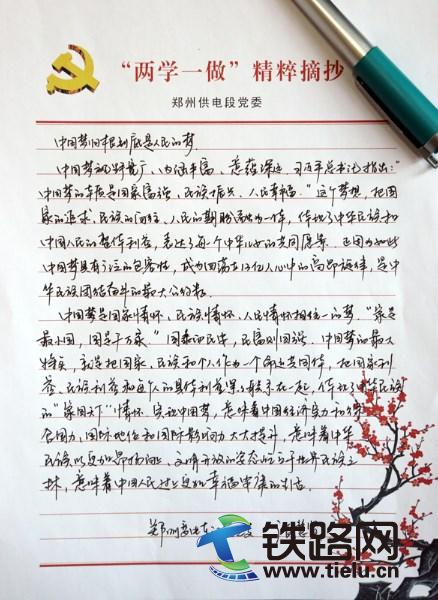 “两学一做”精粹摘抄
郑州供电段党委
中国梦归根到底是人民的梦
中国梦视野宽广、内涵丰富、意蕴深远。习近平总书记指出：“
中国梦的本质是国家富强、民族振兴、人民幸福。”这个梦想，把国
家的追求、民族的向往、人民的期盼融为一体，体现了中华民族和
中国人民的整体利益，表达了每个中华儿女的共同愿景。正因为如此
中国梦具有广泛的包容性，成为回荡在13亿人心中的高昂旋律，是中
华民族团结奋斗的最大公约数。
中国梦是国家情怀、民族情怀、人民情怀相统一的梦。“家是
最小国，国是千万家”。国泰而民安，民富则国强。中国梦的最大
特质，就是把国家、民族和个人作为一个命运共同体，把国家利
益、民族利益和每个人的具体利益紧紧联系在一起，体现了中华民族
的“家国天下”情怀。实现中国梦，意味着中国经济实力和综
合国力、国际地位和国际影响力大大提升，意味着中华
民族以更加昂扬向上、文明开放的姿态屹立于世界民族之
林，意味着中国人民过上更加幸福安康的生活。
郑州
铁路网
www.tielu.cn